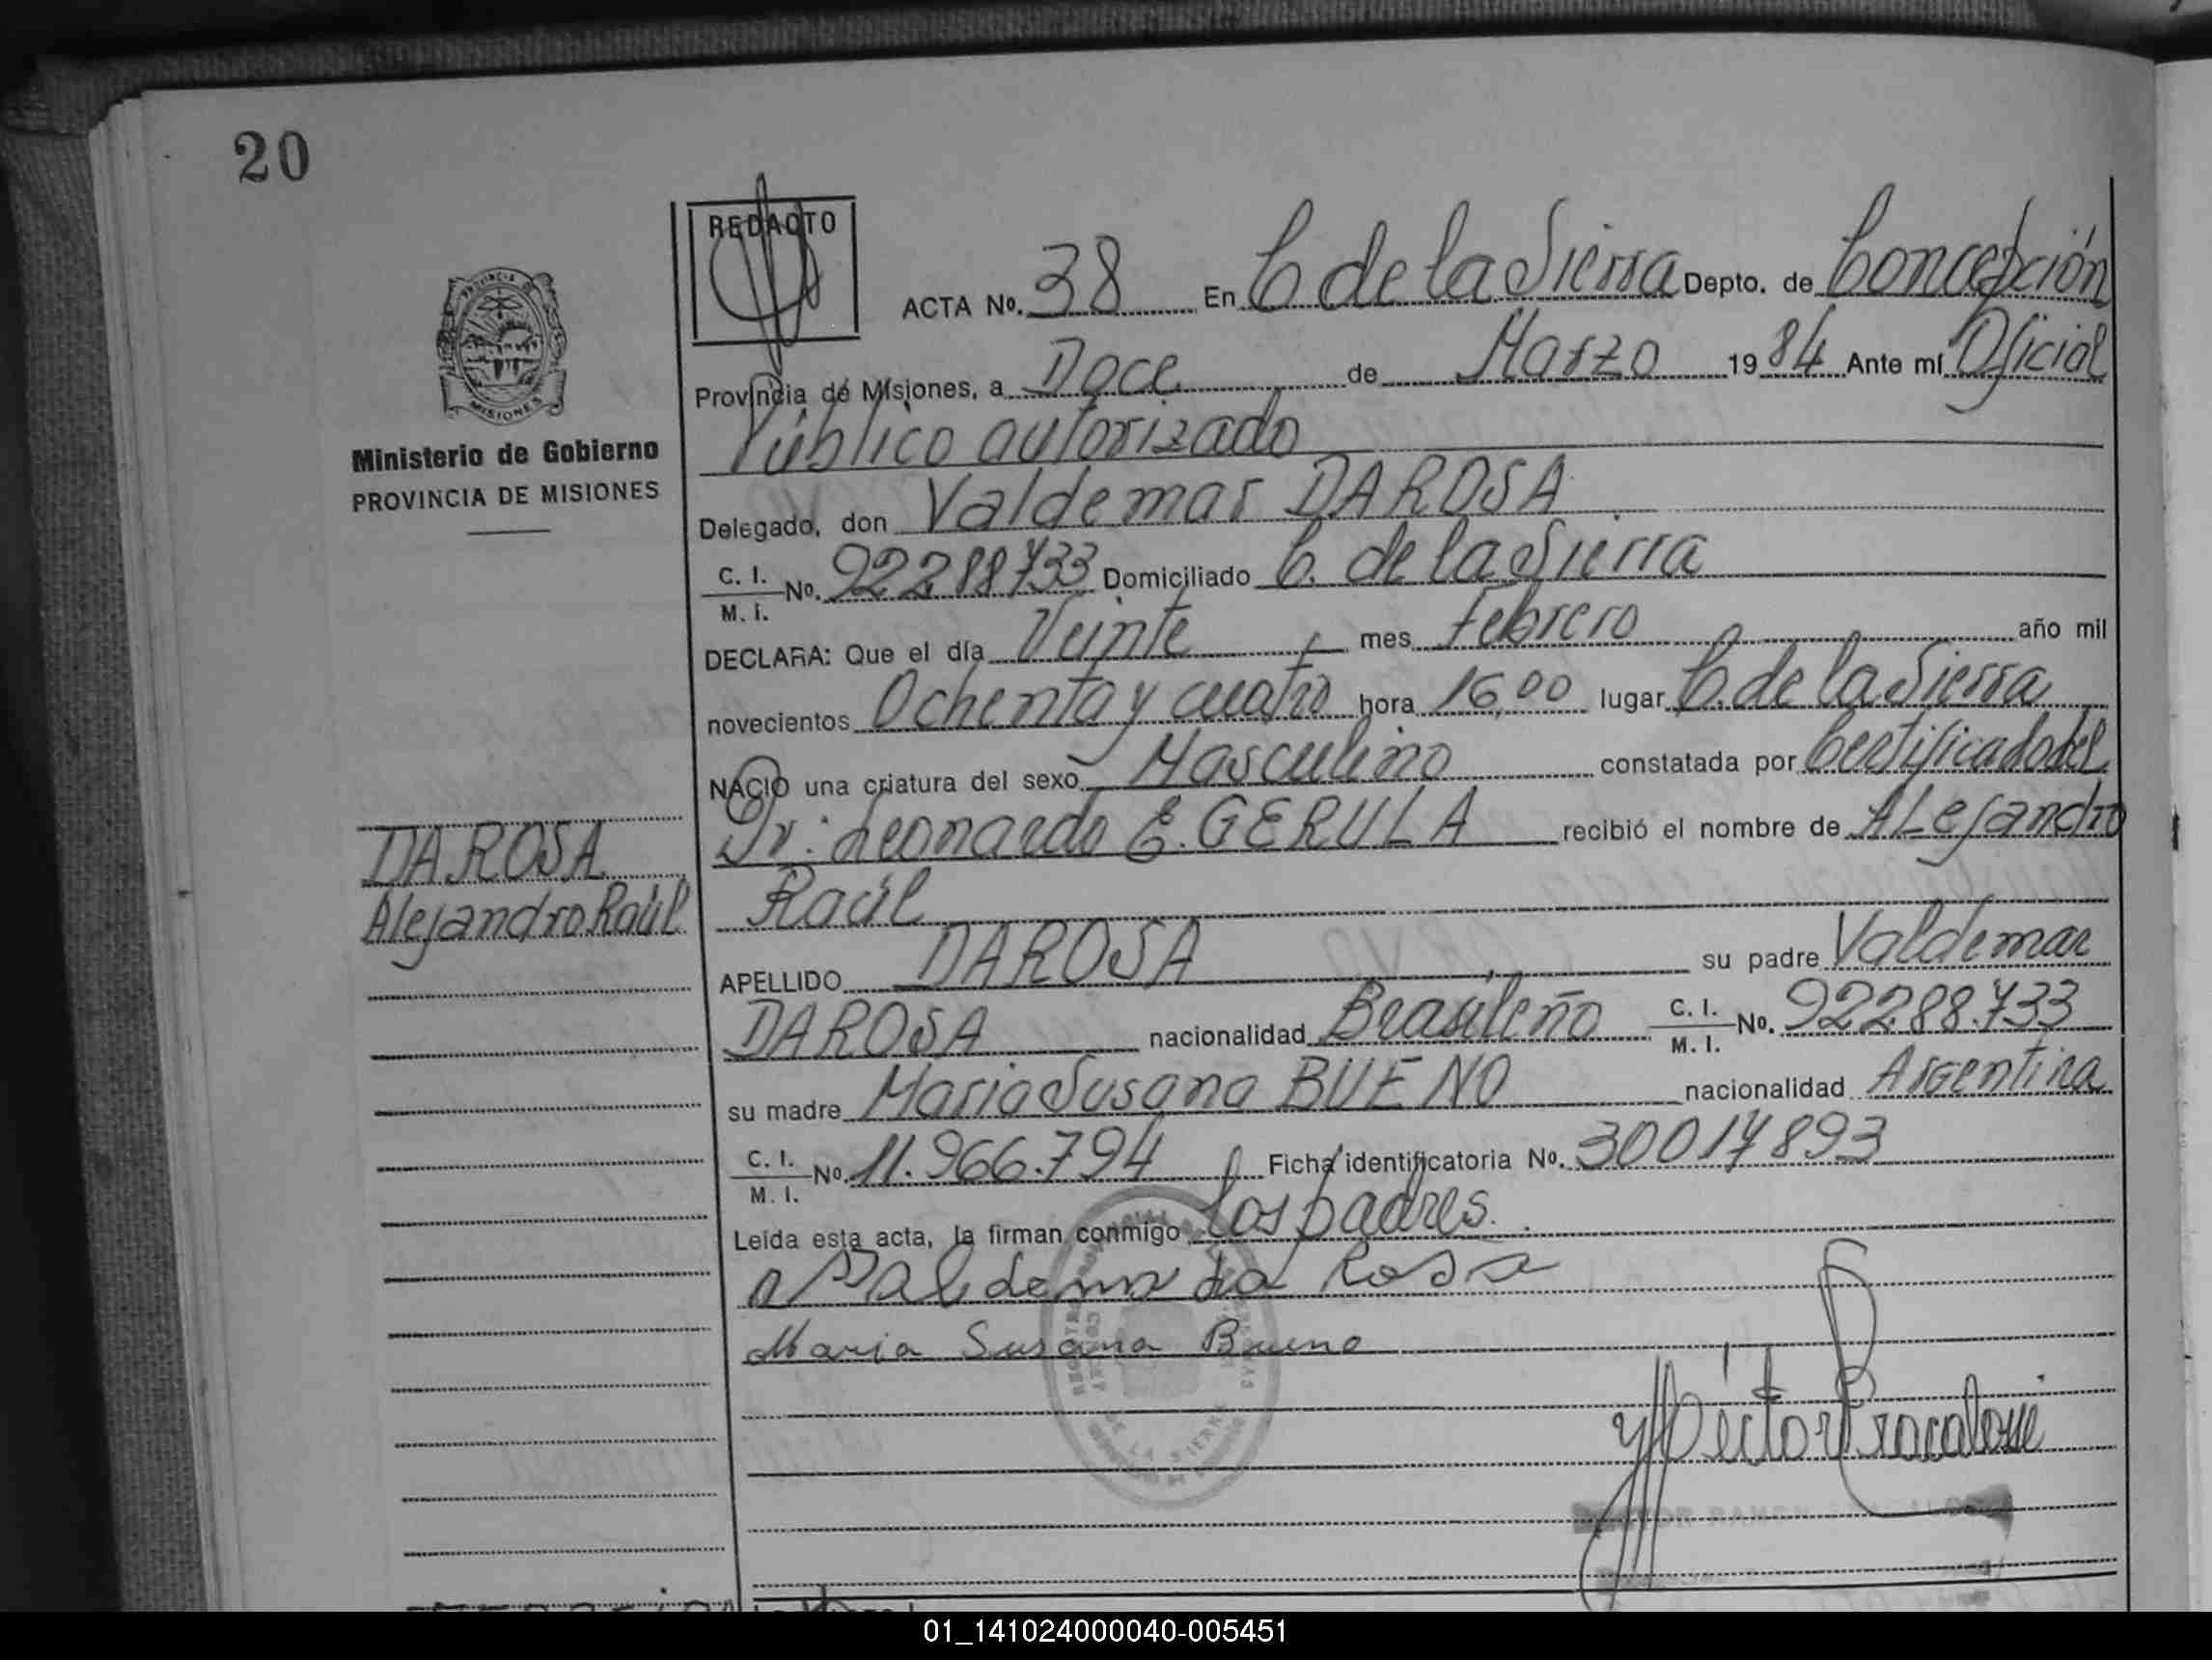 20
REDACTO
ACTA No. 38 En C de la Sierra Depto. de Concepción
Provincia de Misiones, a Doce de Marzo 1984 Ante mí Oficial
Público autorizado
Ministerio de Gobierno
PROVINCIA DE MISIONES
Delegado, don Valdemar DAROSA
C. I.
M. I. No. 92288733 Domiciliado C. de la Sierra
DECLARA: Que el día Veinte mes Febrero año mil
novecientos Ochenta y cuatro hora 16,00 lugar C. de la Sierra
NACIO una criatura del sexo Masculino constatada por Certificado del
Dr: Leonardo E. GERULA recibió el nombre de ALejandro
DAROSA
Alejandro Raúl
Raúl
APELLIDO DAROSA su padre Valdemar
DAROSA nacionalidad Brasileño C. I.
M. I. No. 92288.733
su madre Maria Susana BUENO nacionalidad Argentina
C. I.
M. I. No. 11.966.794 Ficha identificatoria No. 30017893
Leída esta acta, la firman conmigo los padres.
Valdemar da Rosa
Maria Susana Bueno
DE LA SIERRA
01_141024000040-005451